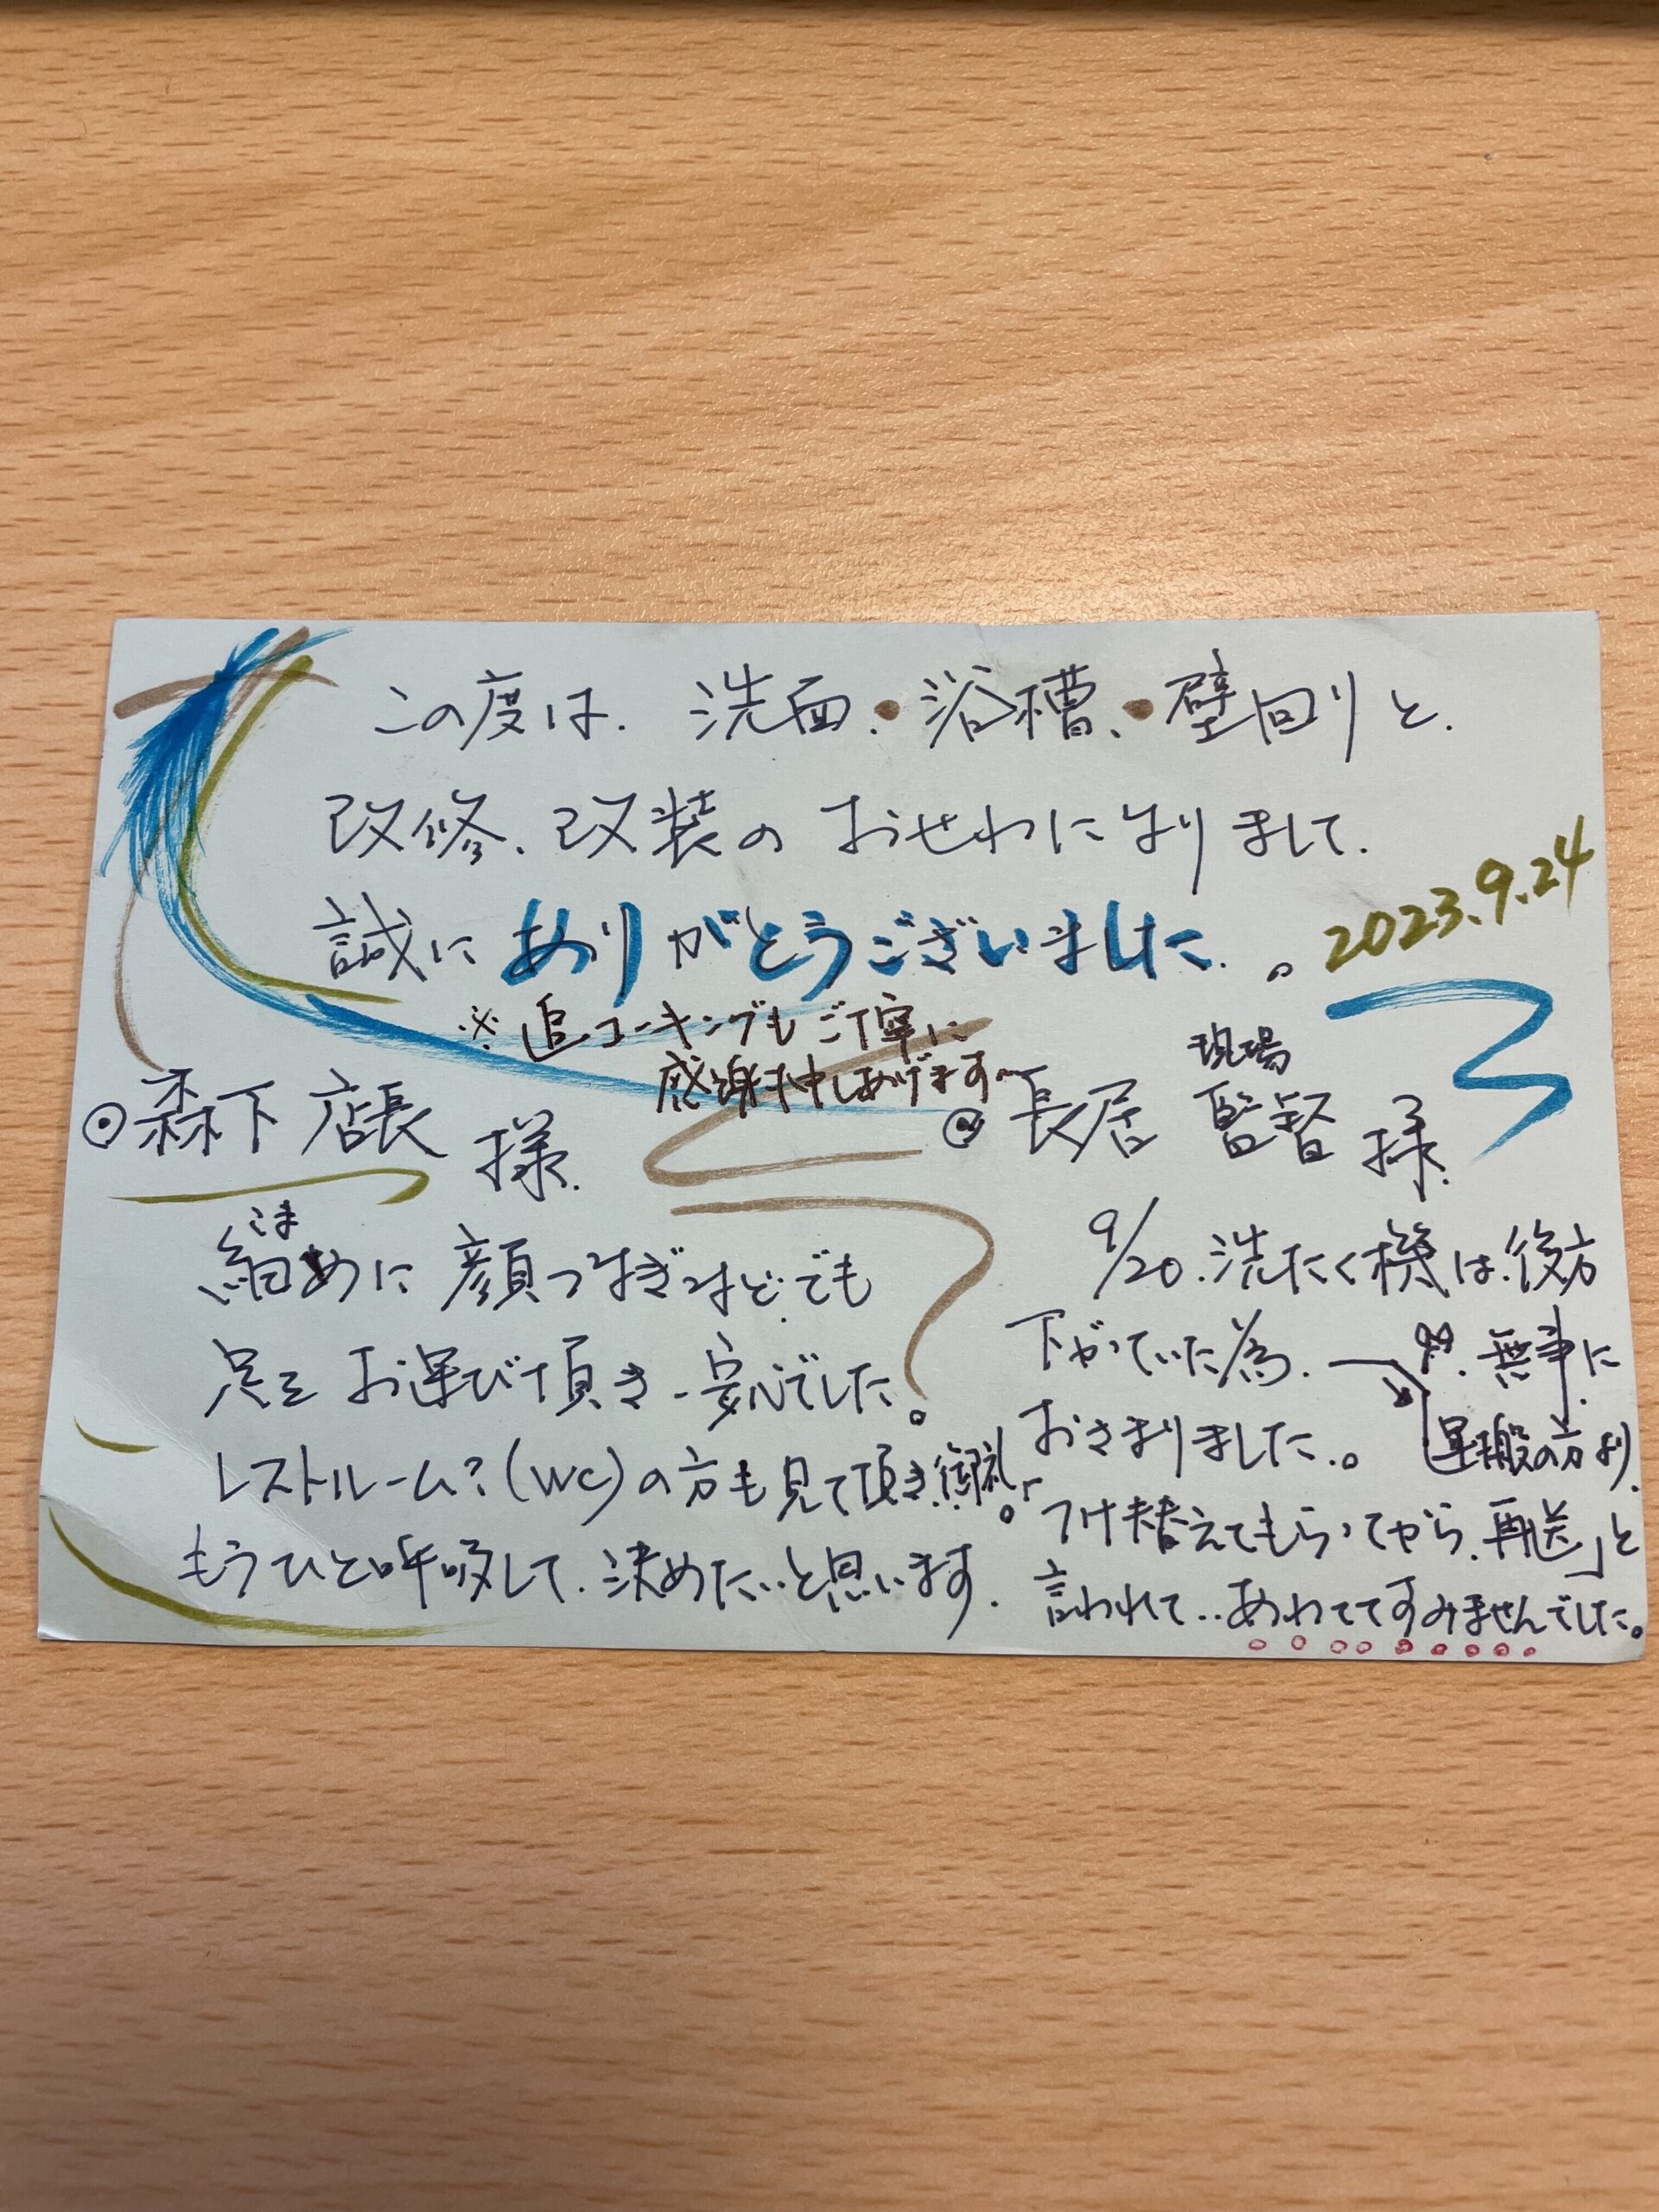 この度は、洗面・浴槽、・壁回りと、
改修、改装のおせわになりまして、
誠にありがとうございました。
2023.9.24
※追コーキングもご丁寧に
感謝申しあげます
◉森下店長様
細めに顔つなぎなどでも
こま
足をお運び頂き、安心でした。
レストルーム?(WC)の方も見て頂き、御礼。
もうひと呼吸して、決めたいと思います、
◉長居 現場監督様
9/20.洗たく機は、後方
下がっていた為、→無事に
おさまりました。
運搬の方より、
「つけ替えてもらってから、再送」と
言われて‥あわててすみませんでした。